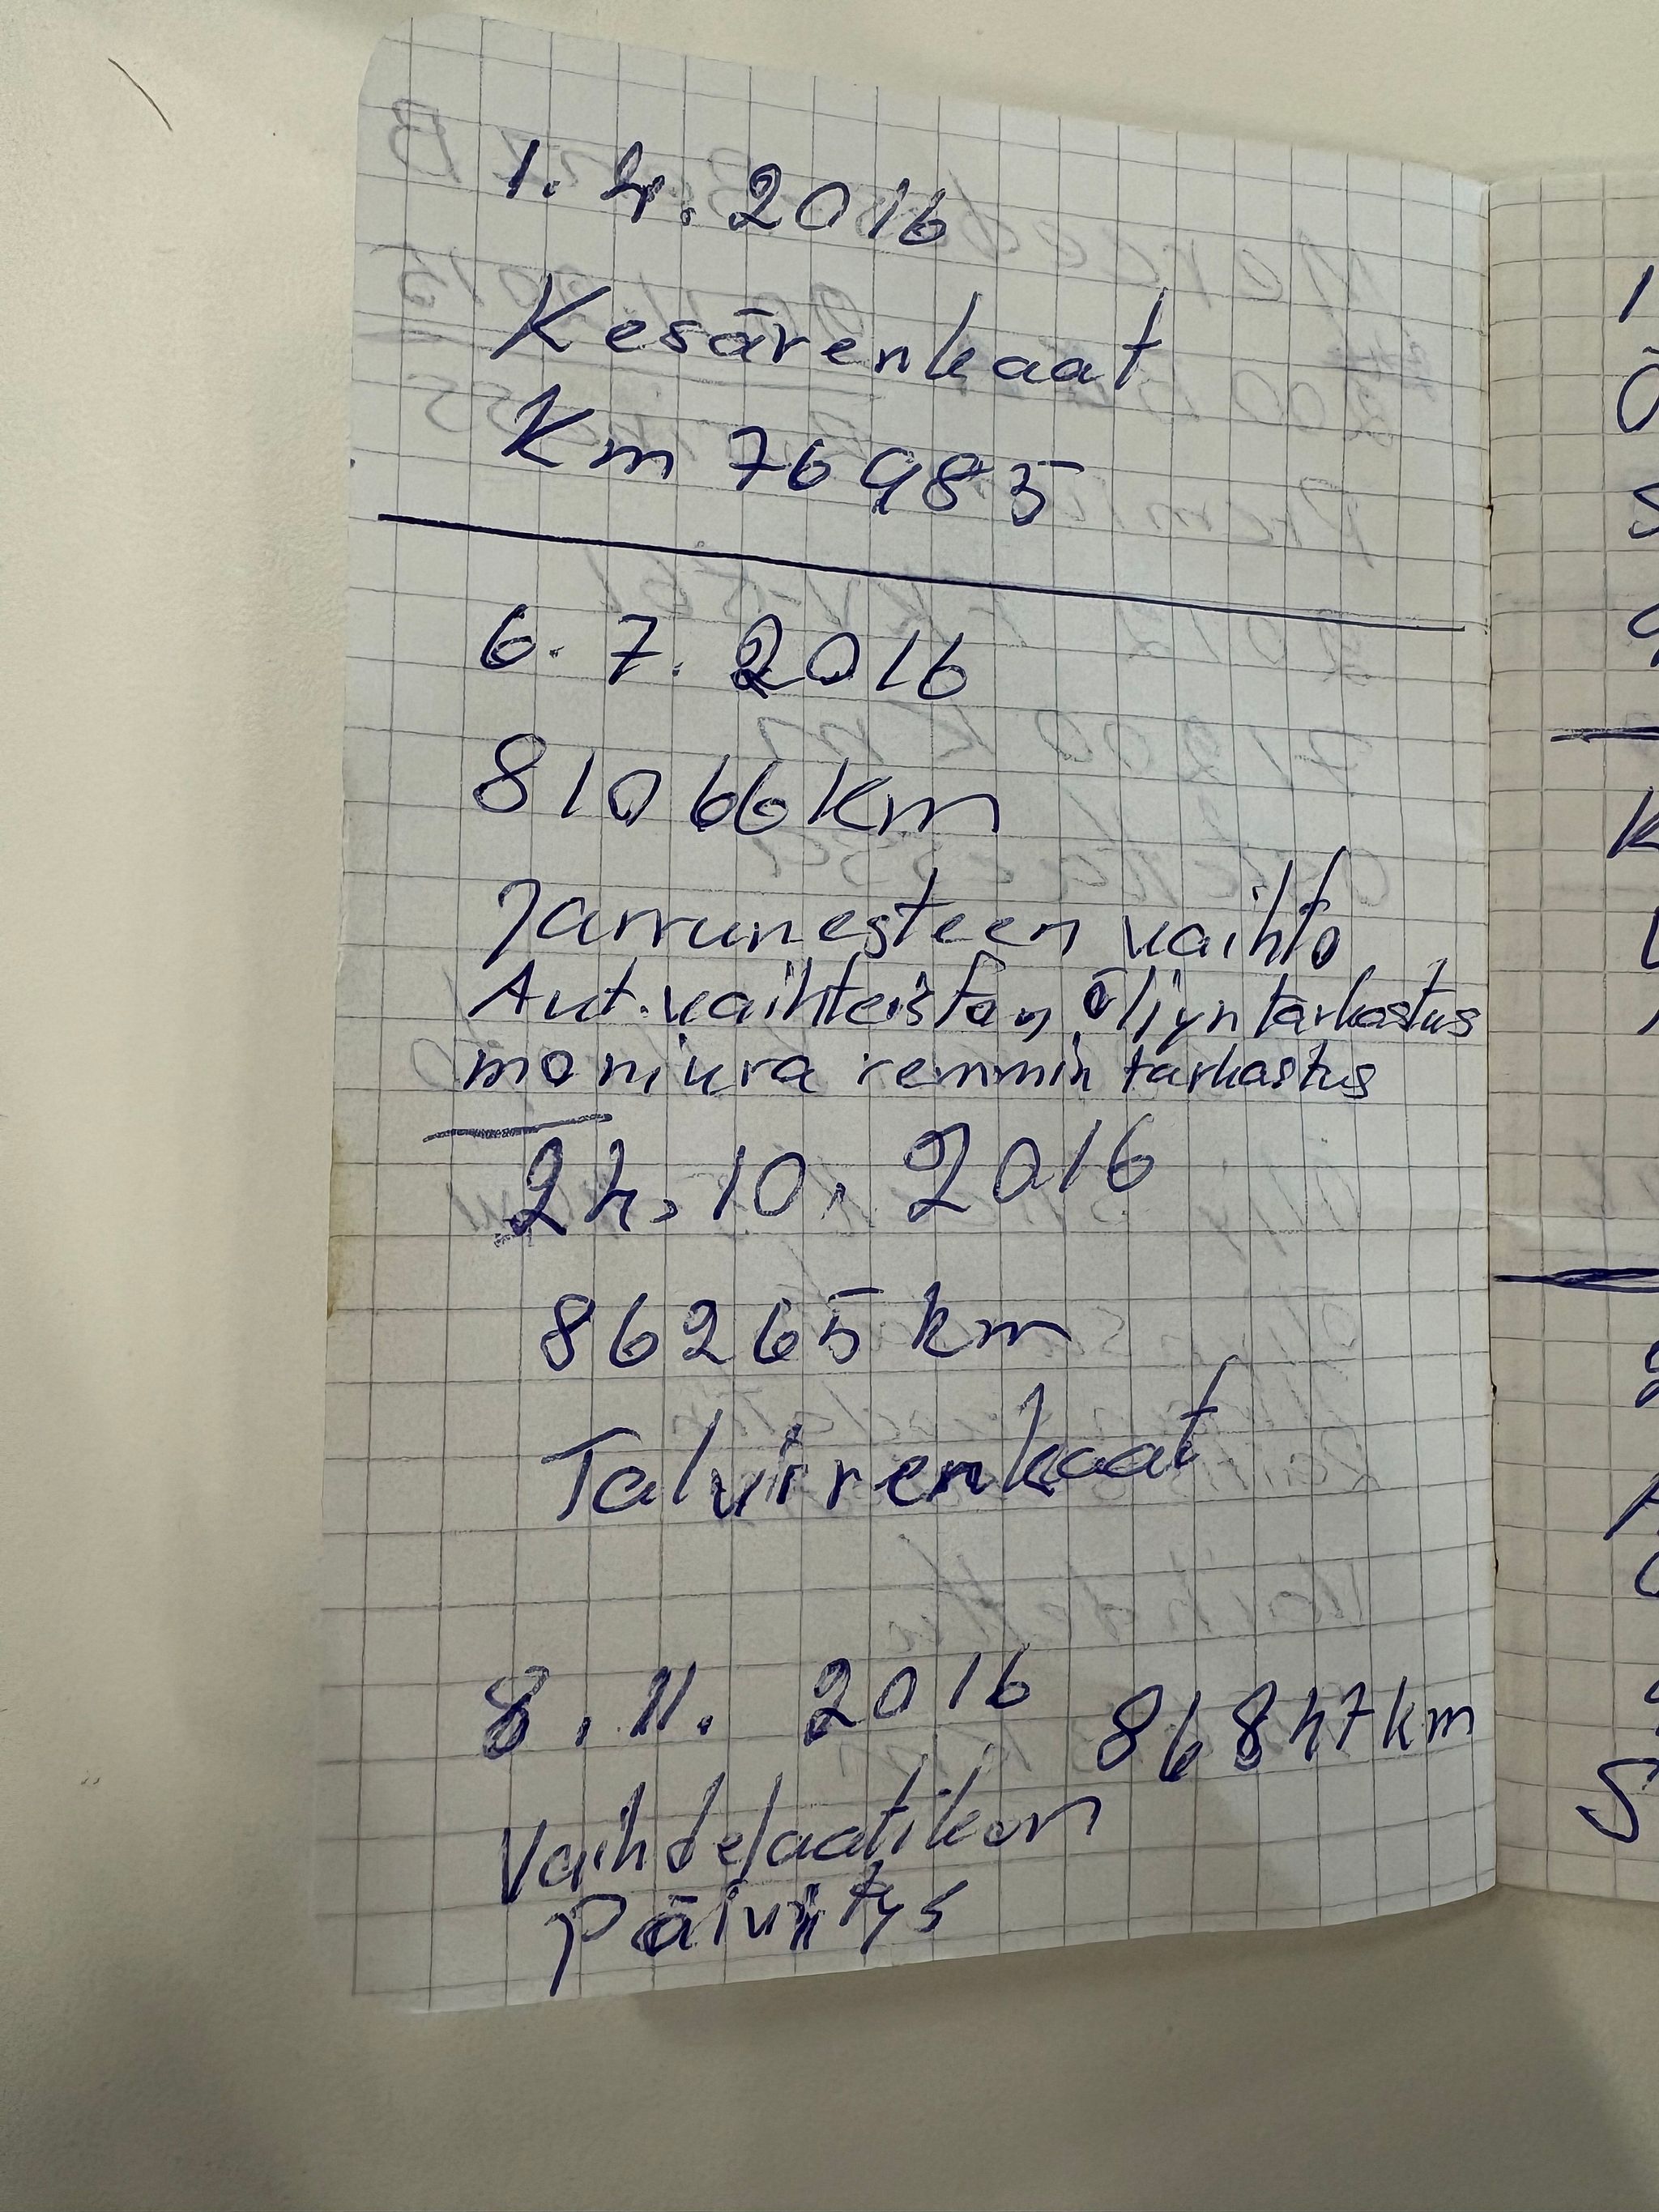 1.4.2016
Kesärenkaat
Km 76985
6.7.2016
81066 km
Jarrunesteen vaihto
Aut.vaihteiston öljyn tarkastus
moniura remmin tarkastus
24.10.2016
86265 km
Talvirenkaat
8.11.2016 86847 km
Vaihdelaatikon
päivitys